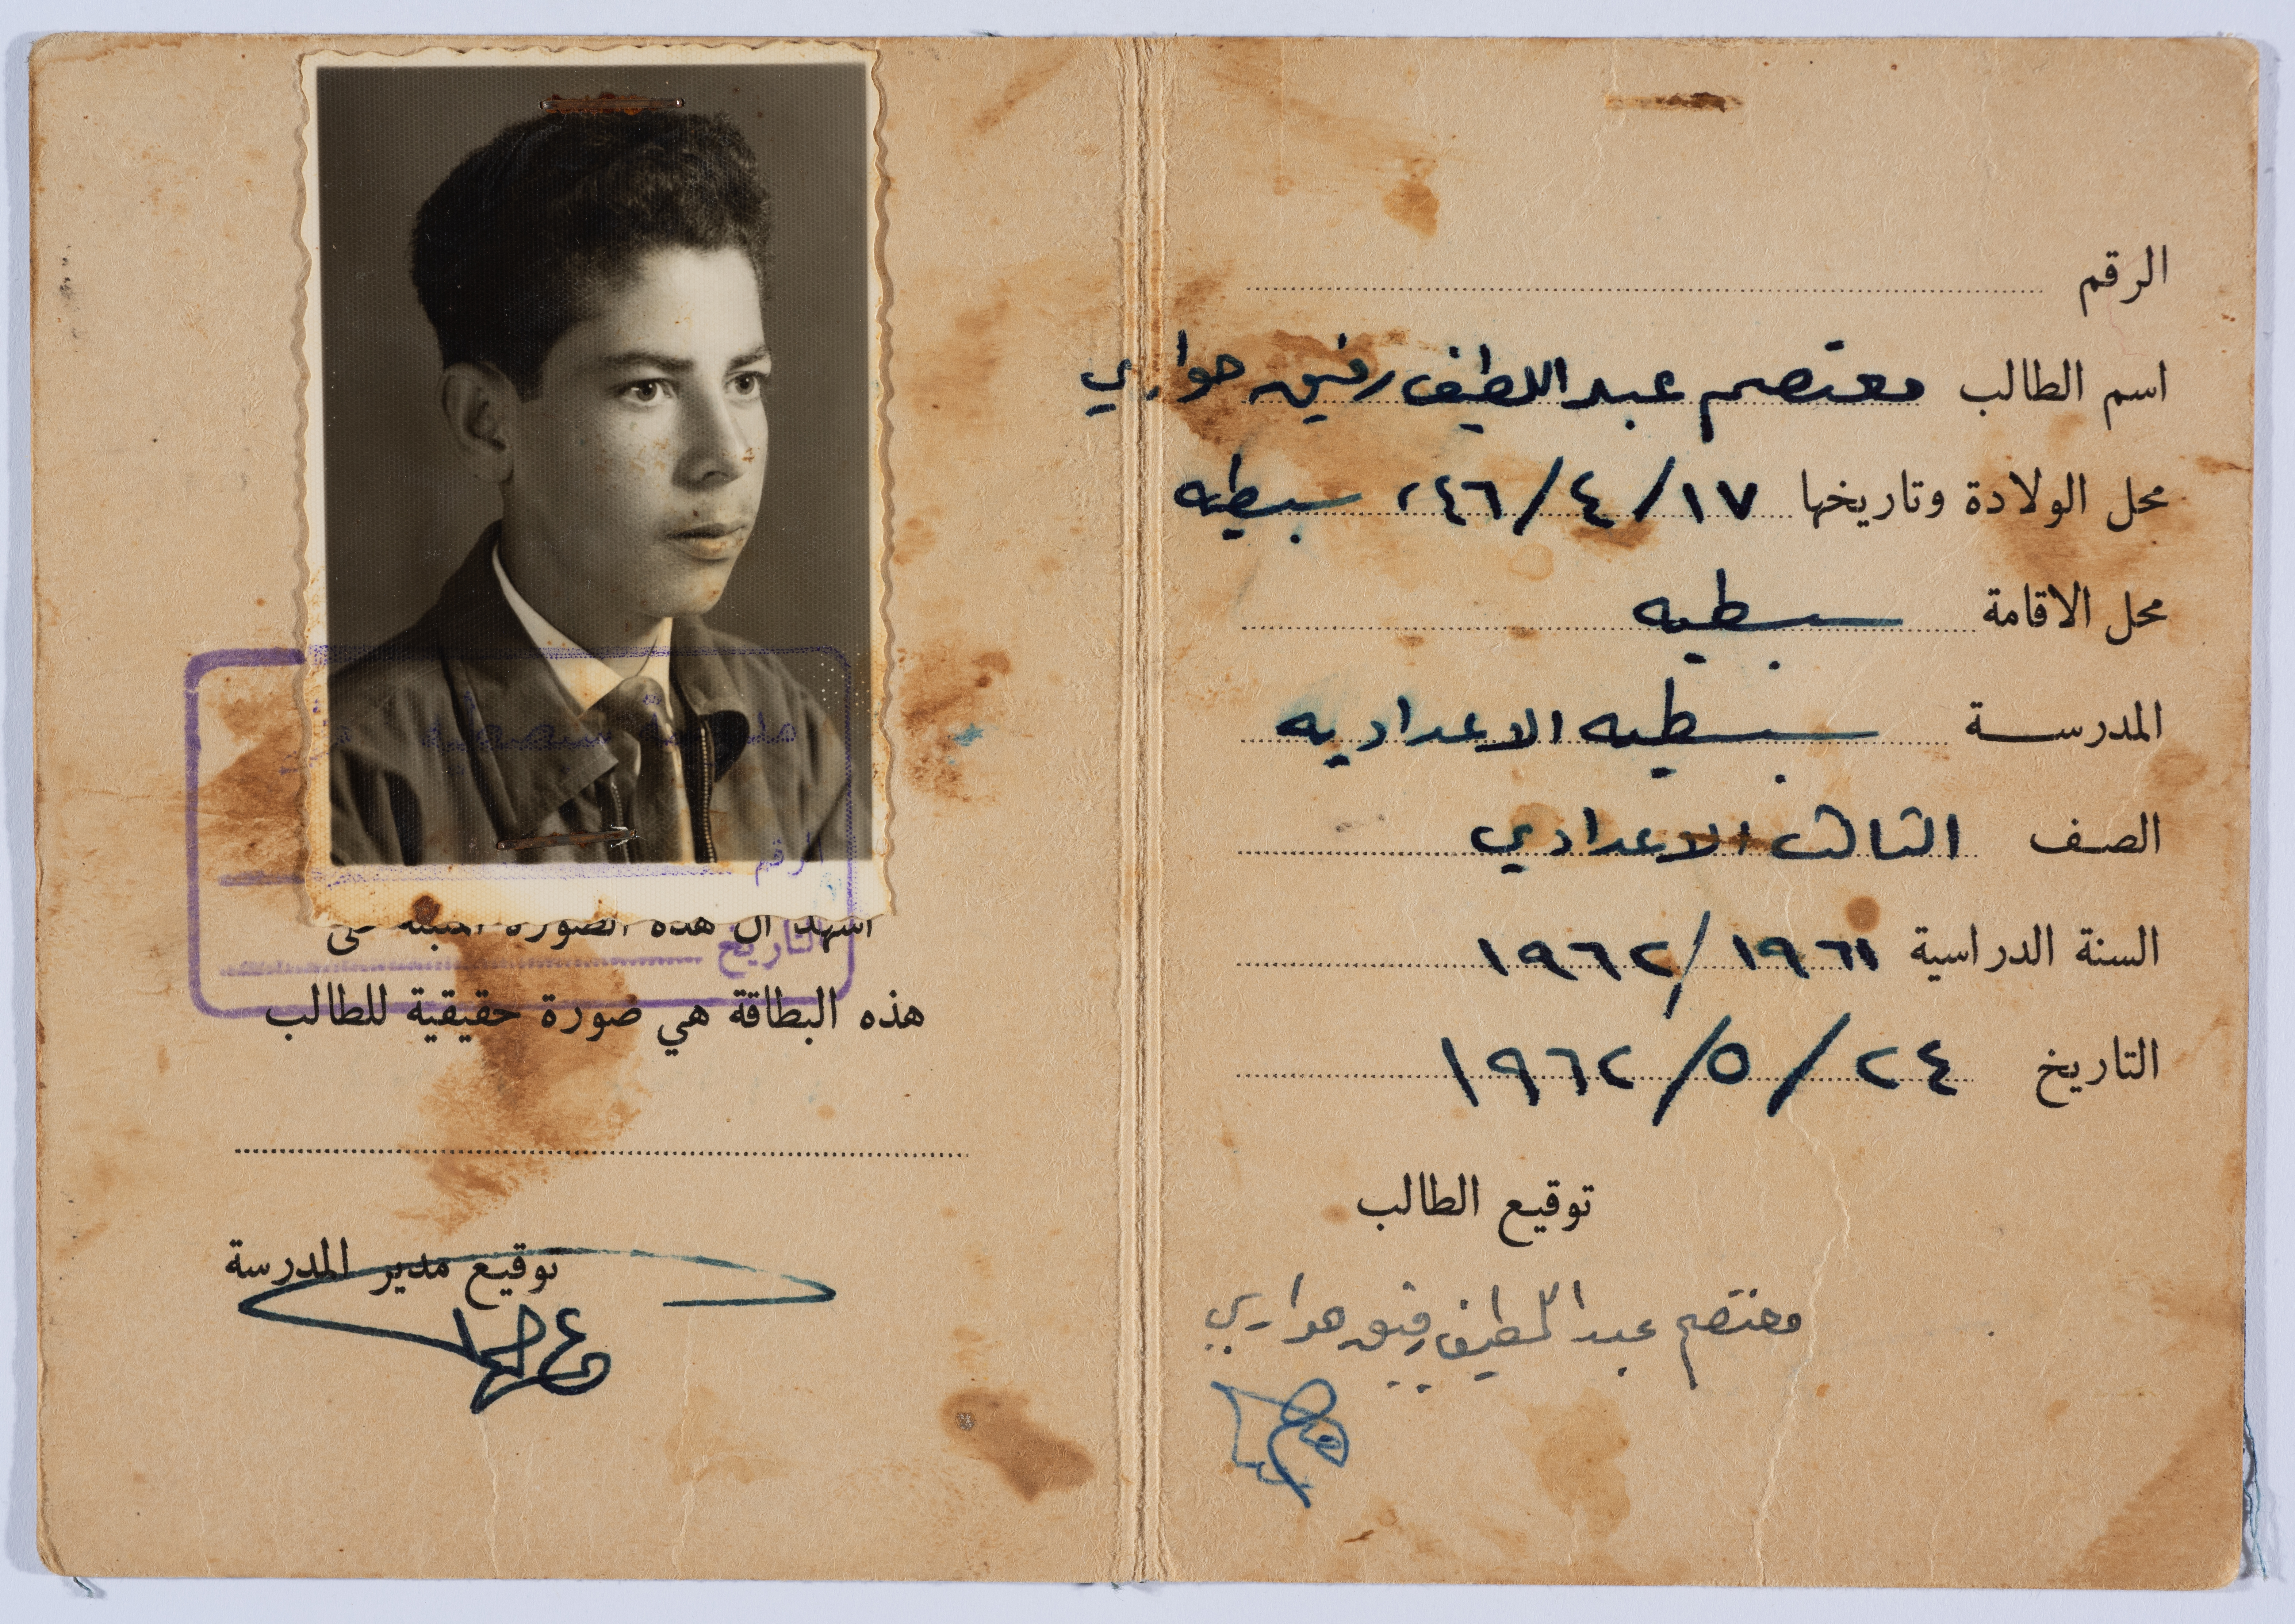 الرقم
اسم الطالب معتصم عبد اللطيف رفيق هواري
محل الولادة وتاريخها ١٧/٤/٤٦ سبسطيه
محل الاقامة سبسطيه
المدرســـة سبسطيه الاعداديه
الصف الثالث الاعدادي
السنة الدراسية ١٩٦١/١٩٦٢
التاريخ ٢٤/٥/١٩٦٢
توقيع الطالب
معتصم عبد اللطيف رفيق هواري
الرقم
التاريخ
اشهد ان هذه الصورة المثبتة على
هذه البطاقة هي صورة حقيقية للطالب
توقيع مدير المدرسة